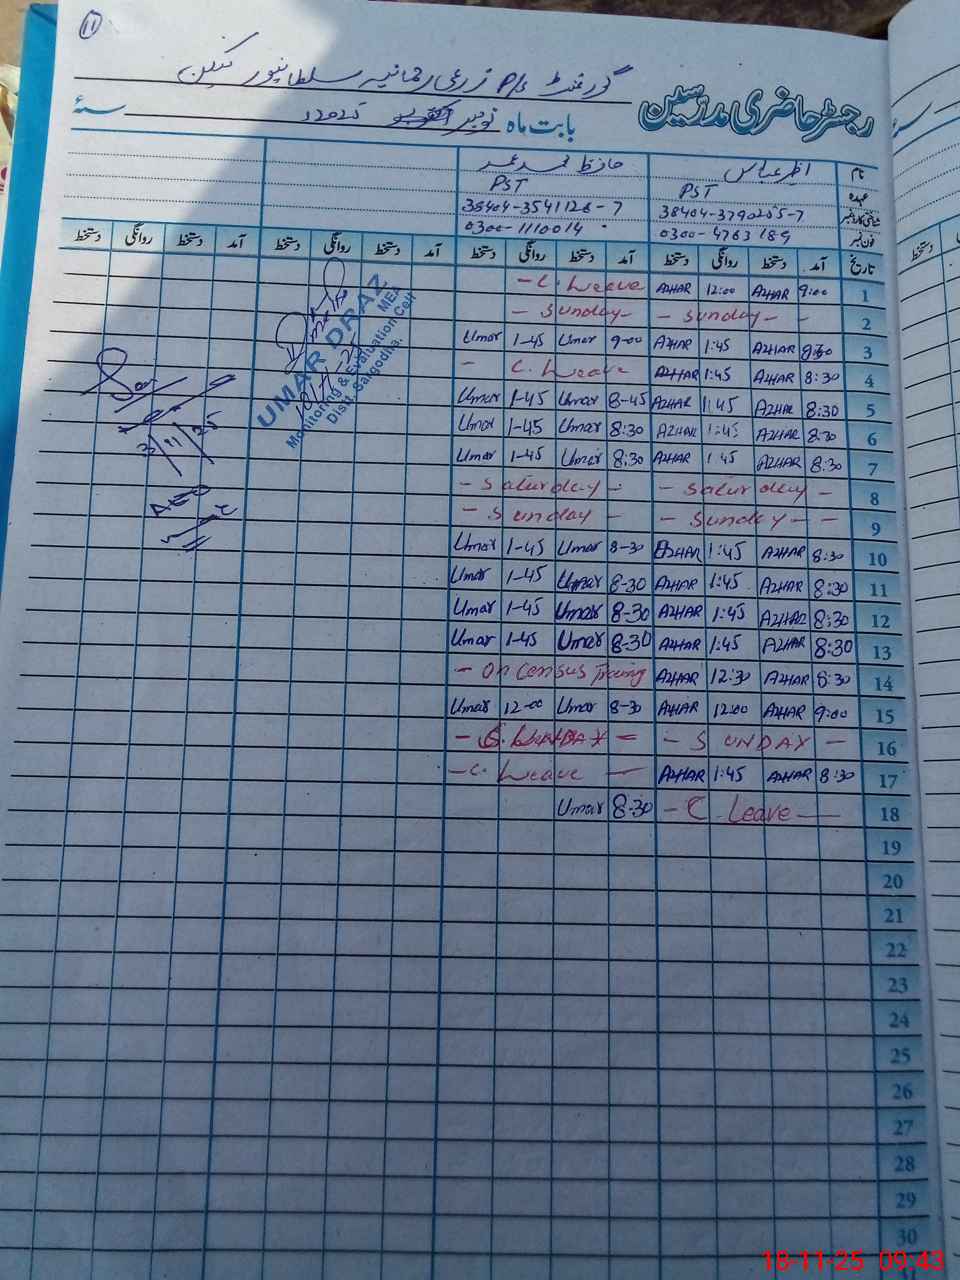 11
گورنمنٹ P/S زرعی رحمانیہ سلطانپور
رجسٹر حاضری مدرسین
بابت ماہ نومبر 2025ء سنہ
نام اظہر عباس حافظ محمد عمر
عہدہ PST PST
شناختی کارڈ نمبر 38404-3790255-7 38404-3541126-7
فون نمبر 0300-4763189 0300-1110014
تاریخ آمد دستخط روانگی دستخط آمد دستخط روانگی دستخط آمد دستخط روانگی دستخط آمد دستخط روانگی دستخط
1 9:00 AZHAR 12:00 AZHAR - C. Leave
2 - Sunday - - - Sunday -
3 8:30 AZHAR 1:45 AZHAR 9-00 Umar 1-45 Umar
4 8:30 AZHAR 1:45 AZHAR - C. Leave
5 8:30 AZHAR 1:45 AZHAR 8-45 Umar 1-45 Umar
6 8:30 AZHAR 1:45 AZHAR 8:30 Umar 1-45 Umar
7 8:30 AZHAR 1:45 AZHAR 8:30 Umar 1-45 Umar
8 - Saturday - - Saturday -
9 - Sunday - - - Sunday -
10 8:30 AZHAR 1:45 AZHAR 8-30 Umar 1-45 Umar
11 8:30 AZHAR 1:45 AZHAR 8-30 Umar 1-45 Umar
12 8:30 AZHAR 1:45 AZHAR 8-30 Umar 1-45 Umar
13 8:30 AZHAR 1:45 AZHAR 8-30 Umar 1-45 Umar
14 8:30 AZHAR 12:30 AZHAR - On Census Traning
15 9:00 AZHAR 12:00 AZHAR 8-30 Umar 12-00 Umar
16 - SUNDAY - - SUNDAY -
17 8:30 AZHAR 1:45 AZHAR - C. Leave -
18 - C. Leave - 8-30 Umar
19
20
21
22
23
24
25
26
27
28
29
30
UMAR DRAZ
MEA
Monitoring & Evaluation Cell
Distt. Sargodha.
10/11/25
3/11/25
AEO
دستخط
سنہ
18-11-25 09:43